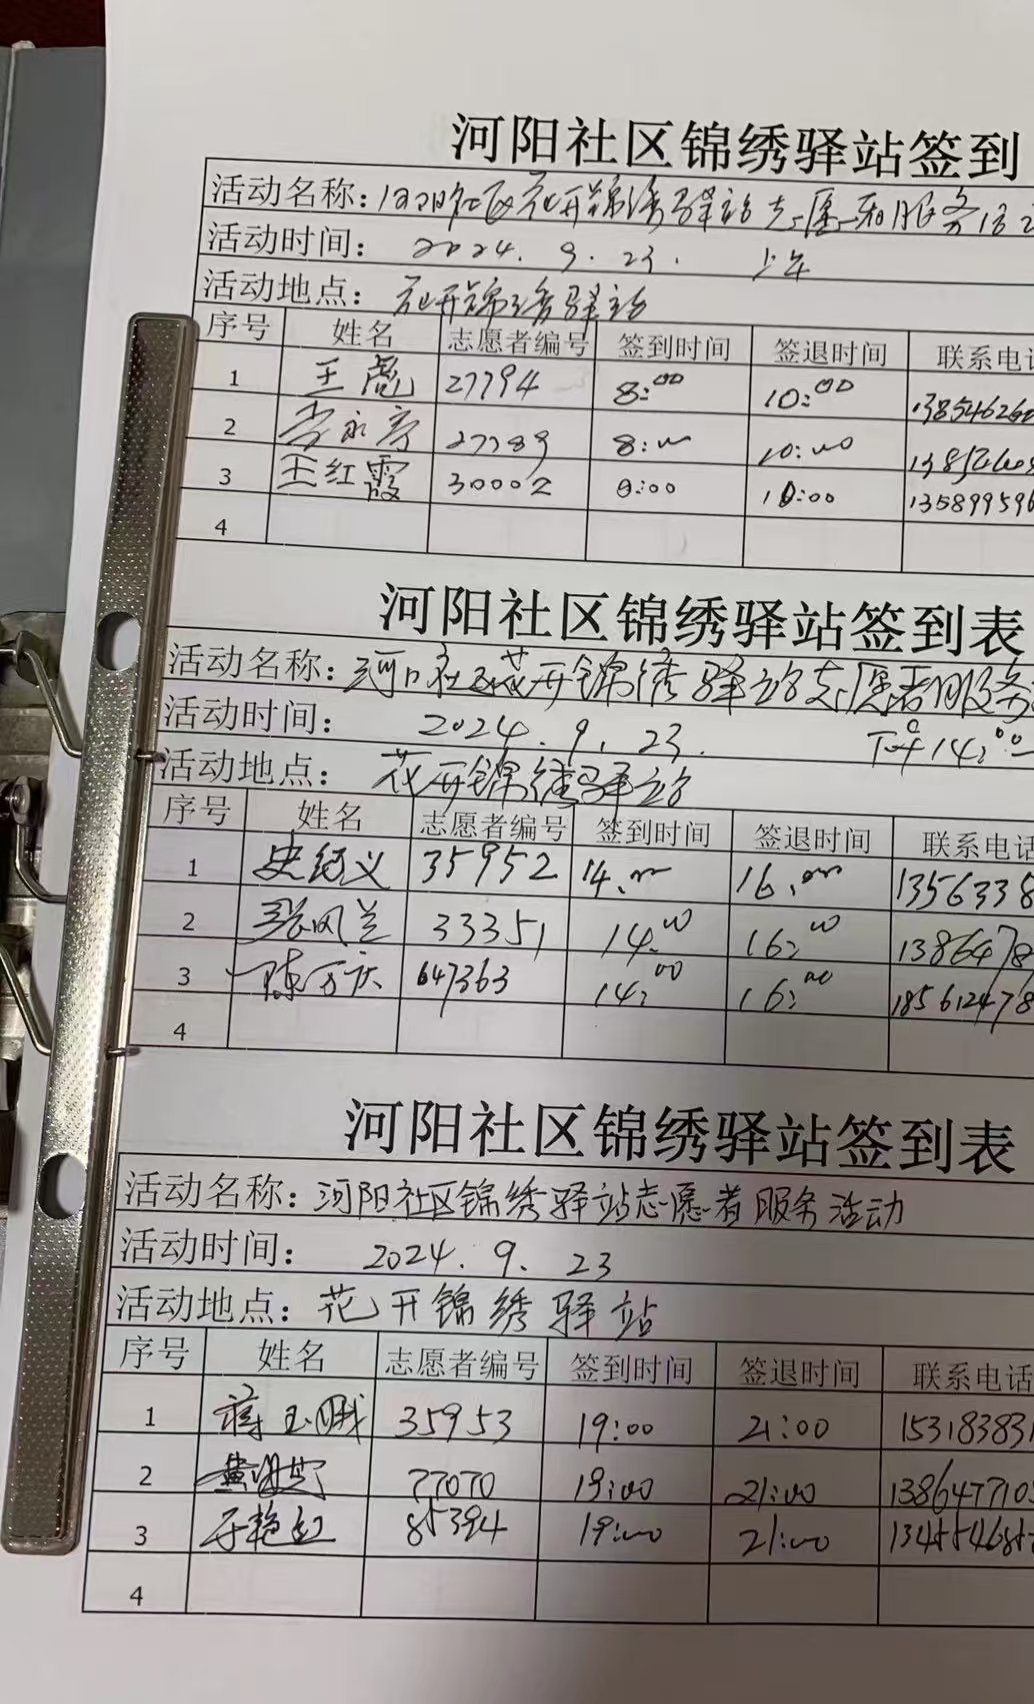 河阳社区锦绣驿站签到
活动名称：河阳社区花开锦绣驿站志愿者服务活动
活动时间： 2024.9.23. 上午
活动地点： 花开锦绣驿站
序号 姓名 志愿者编号 签到时间 签退时间 联系电话
1 王彪 27794 8:00 10:00 138546260
2 27789 8:00 10:00
3 王红霞 30002 8:00 10:00 135899596
4
河阳社区锦绣驿站签到表
活动名称：河口社区花开锦绣驿站志愿者服务
活动时间： 2024.9.23. 下午14:00
活动地点： 花开锦绣驿站
序号 姓名 志愿者编号 签到时间 签退时间 联系电话
1 史纪义 35952 14:00 16:00 1356338
2 张凤兰 33351 14:00 16:00 1386478
3 陈万庆 647363 14:00 16:00 1856124786
4
河阳社区锦绣驿站签到表
活动名称：河阳社区锦绣驿站志愿者服务活动
活动时间： 2024.9.23
活动地点：花开锦绣驿站
序号 姓名 志愿者编号 签到时间 签退时间 联系电话
1 蒋玉娥 35953 19:00 21:00 15318383
2 77070 19:00 21:00 138647710
3 于艳红 85394 19:00 21:00 134554685
4